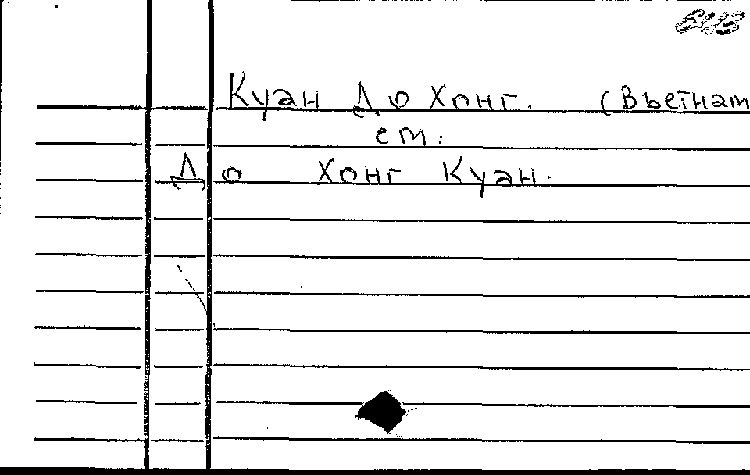 Куан До Хонг. (Вьетнам
см.
До Хонг Куан.